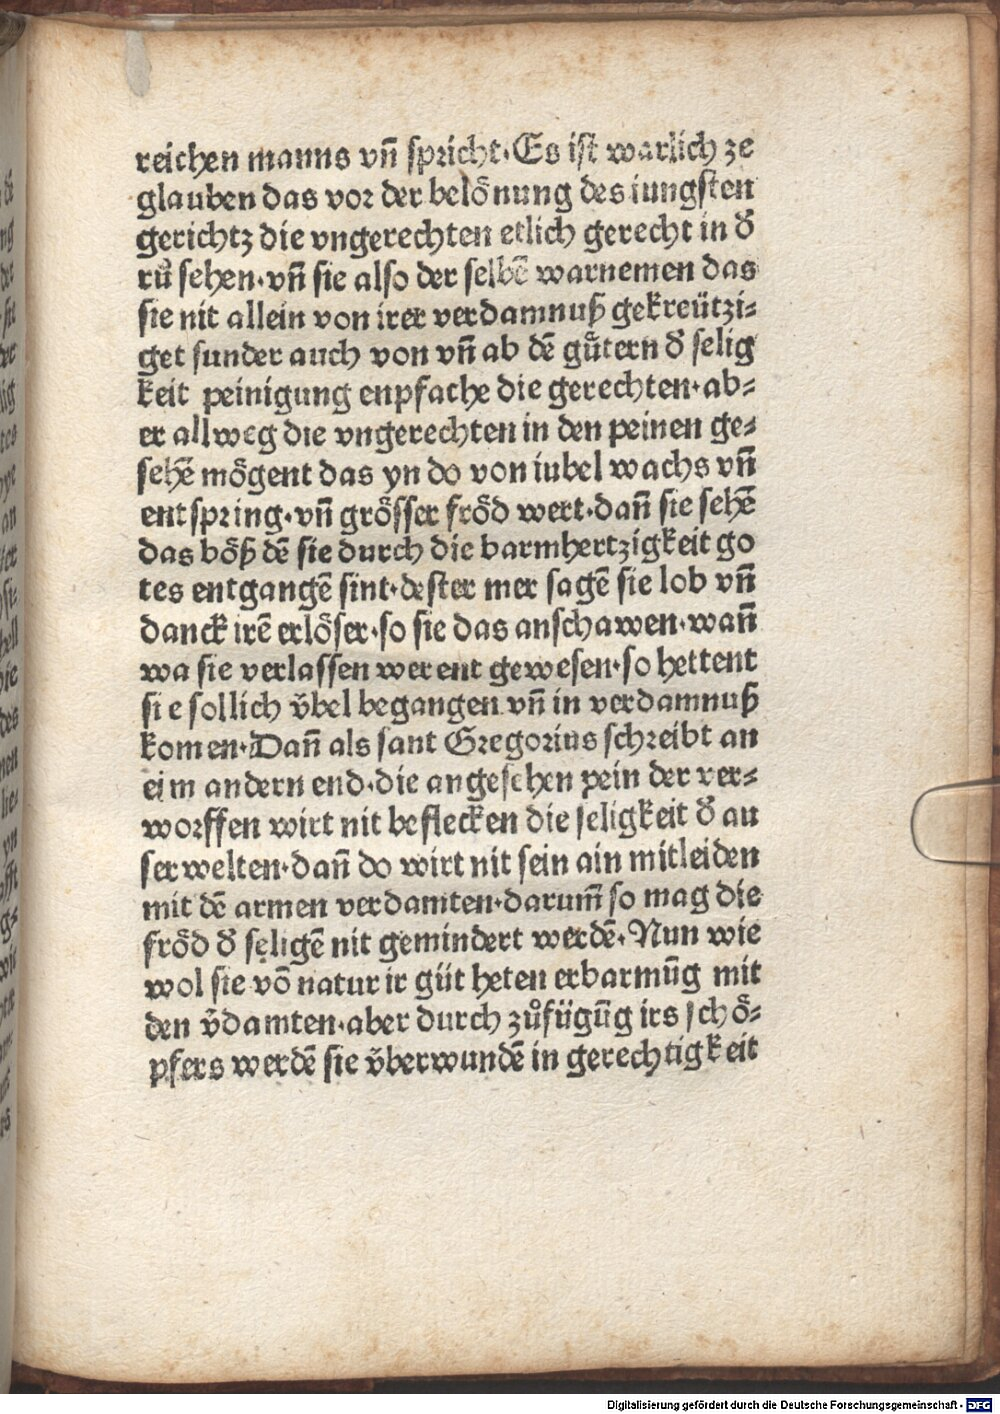 reichen manns vñ spricht·Es ist warlich ze
glauben das vor der belönung des iungsten
gerichtz die vngerechten etlich gerecht in d̄
rů sehen·vñ sie also der selbē warnemen das
sie nit allein von irer verdamnuß gekreützi⸗
get sunder auch von vñ ab dē gůtern d̄ selig
keit peinigung enpfache die gerechten·ab⸗
er allweg die vngerechten in den peinen ge⸗
sehē mögent das yn do von iubel wachs vñ
entspring·vñ grösser fröd wert·dañ sie sehē
das böß dē sie durch die barmhertzigkeit go
tes entgangē sint·dester mer sagē sie lob vñ
danck irē erlöser·so sie das anschawen·wañ
wa sie verlassen werent gewesen·so hettent
sie sollich v̈bel begangen vñ in verdamnuß
komen·Dañ als sant Gregorius schreibt an
eim andern end·die angesehen pein der ver⸗
worffen wirt nit beflecken die seligkeit d̄ au
serwelten·dañ do wirt nit sein ain mitleiden
mit dē armen verdamten·darum̄ so mag die
fröd d̄ seligē nit gemindert werdē·Nun wie
wol sie vō natur ir güt heten erbarmūg mit
den v̄damten·aber durch zůfügūg irs schö⸗
pfers werdē sie v̈berwundē in gerechtigkeit
Digitalisierung gefördert durch die Deutsche Forschungsgemeinschaft - DFG